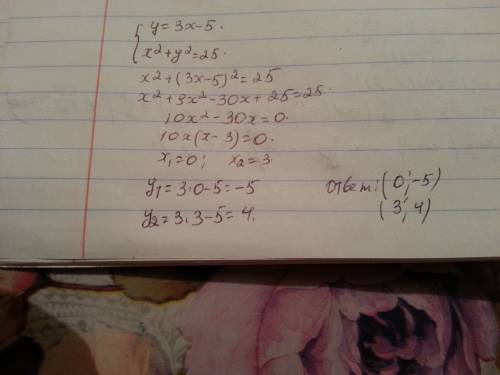 y=3x-5.
x²+y²=25.
x²+(3x-5)²=25
x²+9x²-30x+25=25.
10x²-30x=0.
10x(x-3)=0.
x₁=0; x₂=3
y₁=3·0-5=-5 ответ: (0;-5)
y₂=3·3-5=4. (3;4)